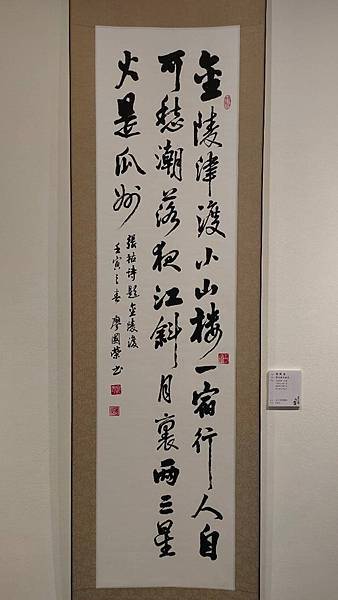 金陵津渡小山樓一宿行人自
可愁潮落夜江斜月裏兩三星
火是瓜州
張祜詩題金陵渡
壬寅之春 廖國榮書